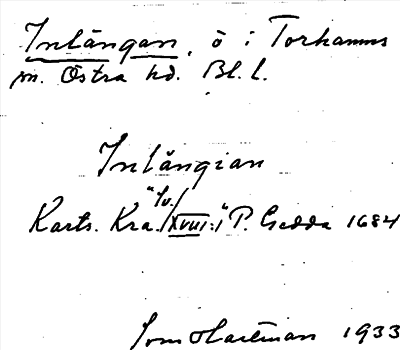 Inlängan, ö i Torhamns
sn. Östra hd. Bl. l.
Inlängian
Kart. Kra. "Sv./XVIII:1" P. Gedda 1684
1933